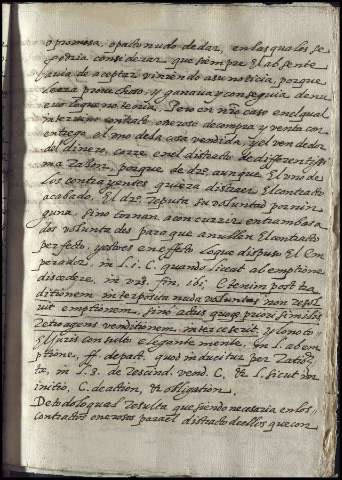 o promesa, o pacto nudo de dar, en las quales se
podria considerar que siempre el absente
havia de aceptar viniendo a su noticia, porque
le era provechoso, y ganava y conseguia de nue
vo lo que no tenia. Pero en nro caso en el qual
intervino contrato oneroso de compra y venta con
entrega el uno de la cosa vendida, y el vendedor
del dinero, corre en el distracto de differentissi
ma razon, porque de dro aunque el uno de
los contrayentes quiera distraer el contracto
acabado, el dro reputa su voluntad por nin
guna, sino tornan a concurrir entrambas a
dos voluntades para que anullen el contracto
perfecto, y este es en effecto lo que dispuso el Em
perador, in l. 1. C. quando liceat ab emptione
discedere, in fin. ibi, Etenim post tra
ditionem interposita nuda voluntas non resol
uit emptionem, sino actus quoque priori similis
retro agens venditionem intercesserit, y lo noto
el jurisconsulto elegantemente, in l. ab emp
tione, ff. de pact. quod inducitur per
in l. 3. de rescind. vend. C. & l. sicut in
initio, C. de action. & obligation.
De todo lo qual resulta que siendo necesaria en los
contractos onerosos para el distracto de ellos que con